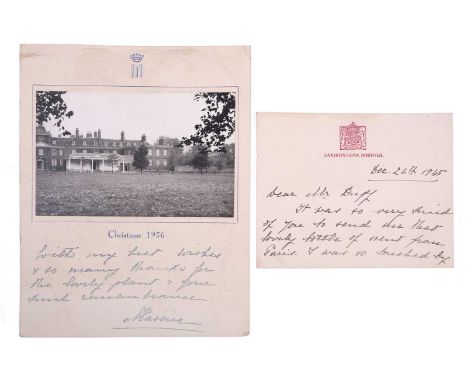 Christmas 1956
With my best wishes
& so many thanks for
the lovely plant & your
kind remembrance
SANDRINGHAM, NORFOLK.
Dec. 26th 1945
Dear Mr Duff
It was so very kind
of you to send me that
lovely bottle of scent from
Paris. I was so touched by